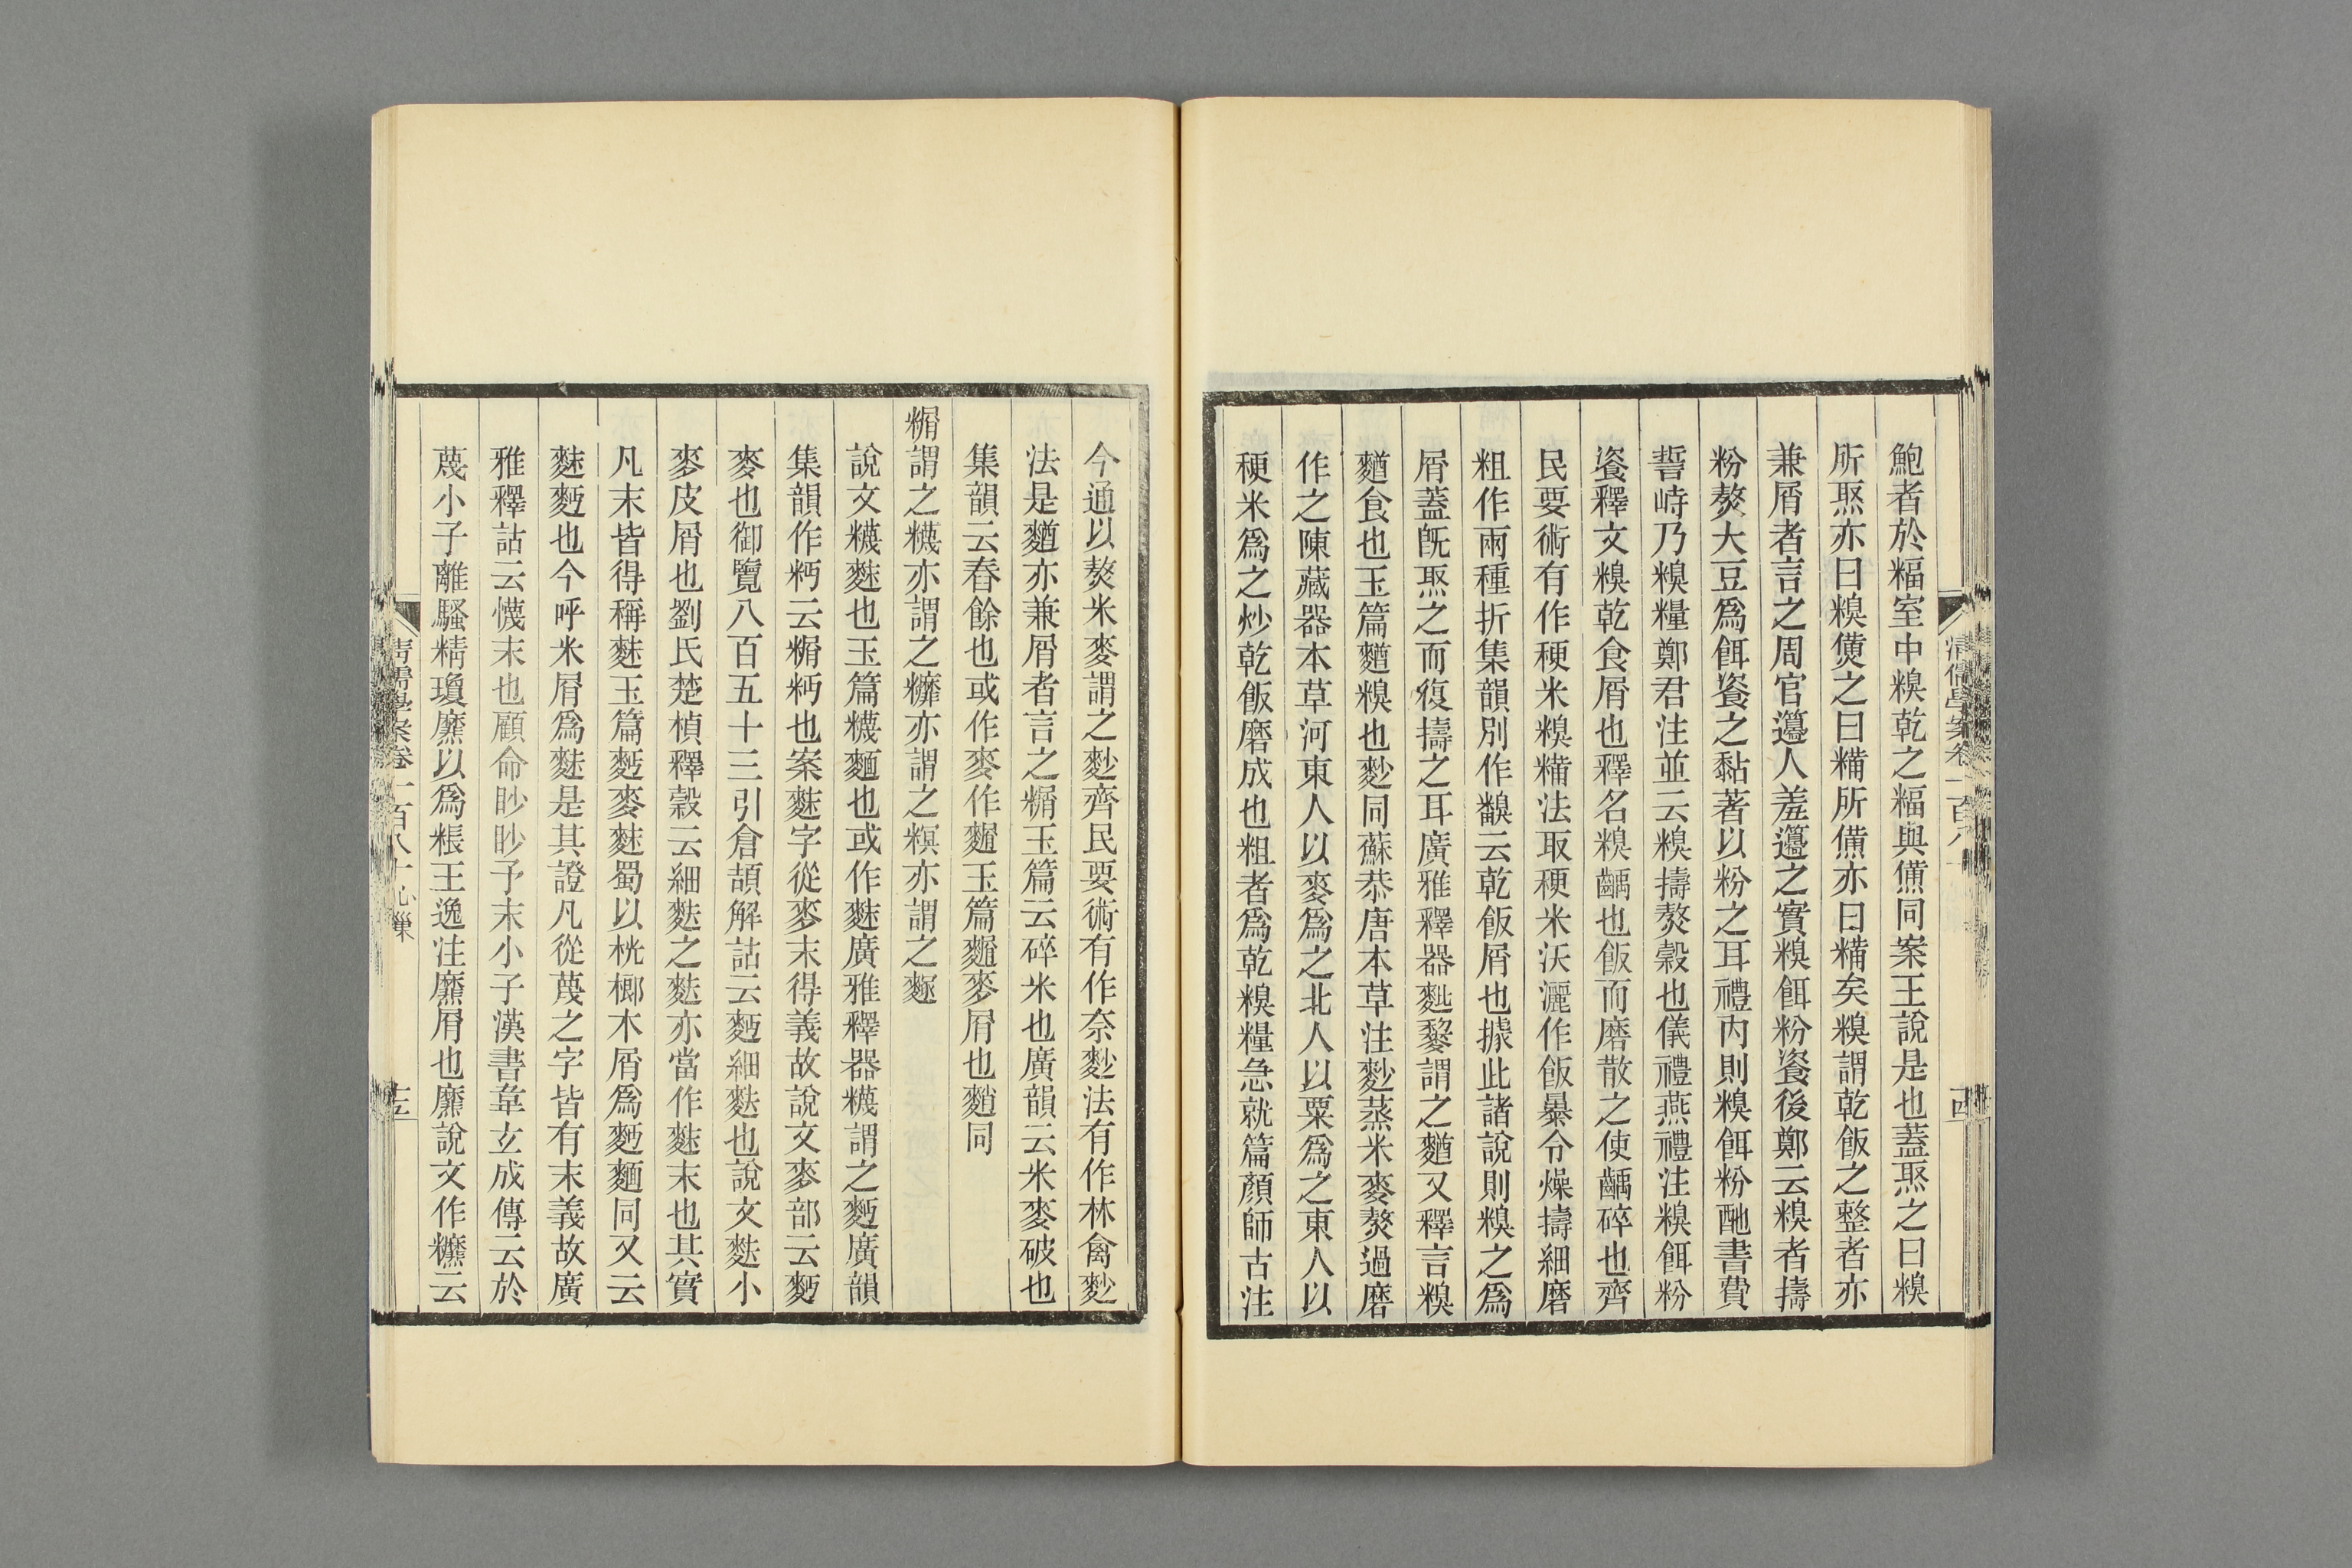 鮑者於糒室中糗乾之糒與㷶同案王說是也蓋焣之曰糗
所焣亦曰糗㷶之曰糒所㷶亦曰糒矣糗謂乾飯之整者亦
兼屑者言之周官籩人羞籩之實糗餌粉餈後鄭云糗者擣
粉熬大豆爲餌餈之黏著以粉之耳禮內則糗餌粉酏書費
誓峙乃糗糧鄭君注並云糗擣熬穀也儀禮燕禮注糗餌粉
餈釋文糗乾食屑也釋名糗齲也飯而磨散之使齲碎也齊
民要術有作稉米糗糒法取稉米沃灑作飯暴令燥擣細磨
粗作兩種折集韻別作䊆云乾飯屑也據此諸說則糗之爲
屑蓋旣焣之而復擣之耳廣雅釋器䴢䴻謂之䴰又釋言糗
䴰食也玉篇䴰糗也麨同蘇恭唐本草注麨蒸米麥熬過磨
作之陳藏器本草河東人以麥爲之北人以粟爲之東人以
稉米爲之炒乾飯磨成也粗者爲乾糗糧急就篇顏師古注
今通以熬米麥謂之麨齊民要術有作奈麨法有作林禽麨
法是䴰亦兼屑者言之䊛玉篇云碎米也廣韻云米麥破也
集韻云舂餘也或作麥作䴷玉篇䴷麥屑也䴭同
䊛謂之䊳亦謂之䊳亦謂之糗亦謂之䴾
說文䊳麩也玉篇䊳麵也或作䴲廣雅釋器䊳謂之麪廣韻
集韻作䊅云䊛䊅也案䴲字從麥末得義故說文麥部云麪
麥也御覽八百五十三引倉頡解詁云麪細麩也說文麩小
麥皮屑也劉氏楚楨釋穀云細麩之麩亦當作䴲末也其實
凡末皆得稱䴲玉篇麪麥䴲蜀以桄榔木屑爲麪麵同又云
䴲麪也今呼米屑爲䴲是其證凡從蔑之字皆有末義故廣
雅釋詁云懱末也顧命眇眇予末小子漢書韋玄成傳云於
蔑小子離騷精瓊爢以爲粻王逸注爢屑也爢說文作䊳云